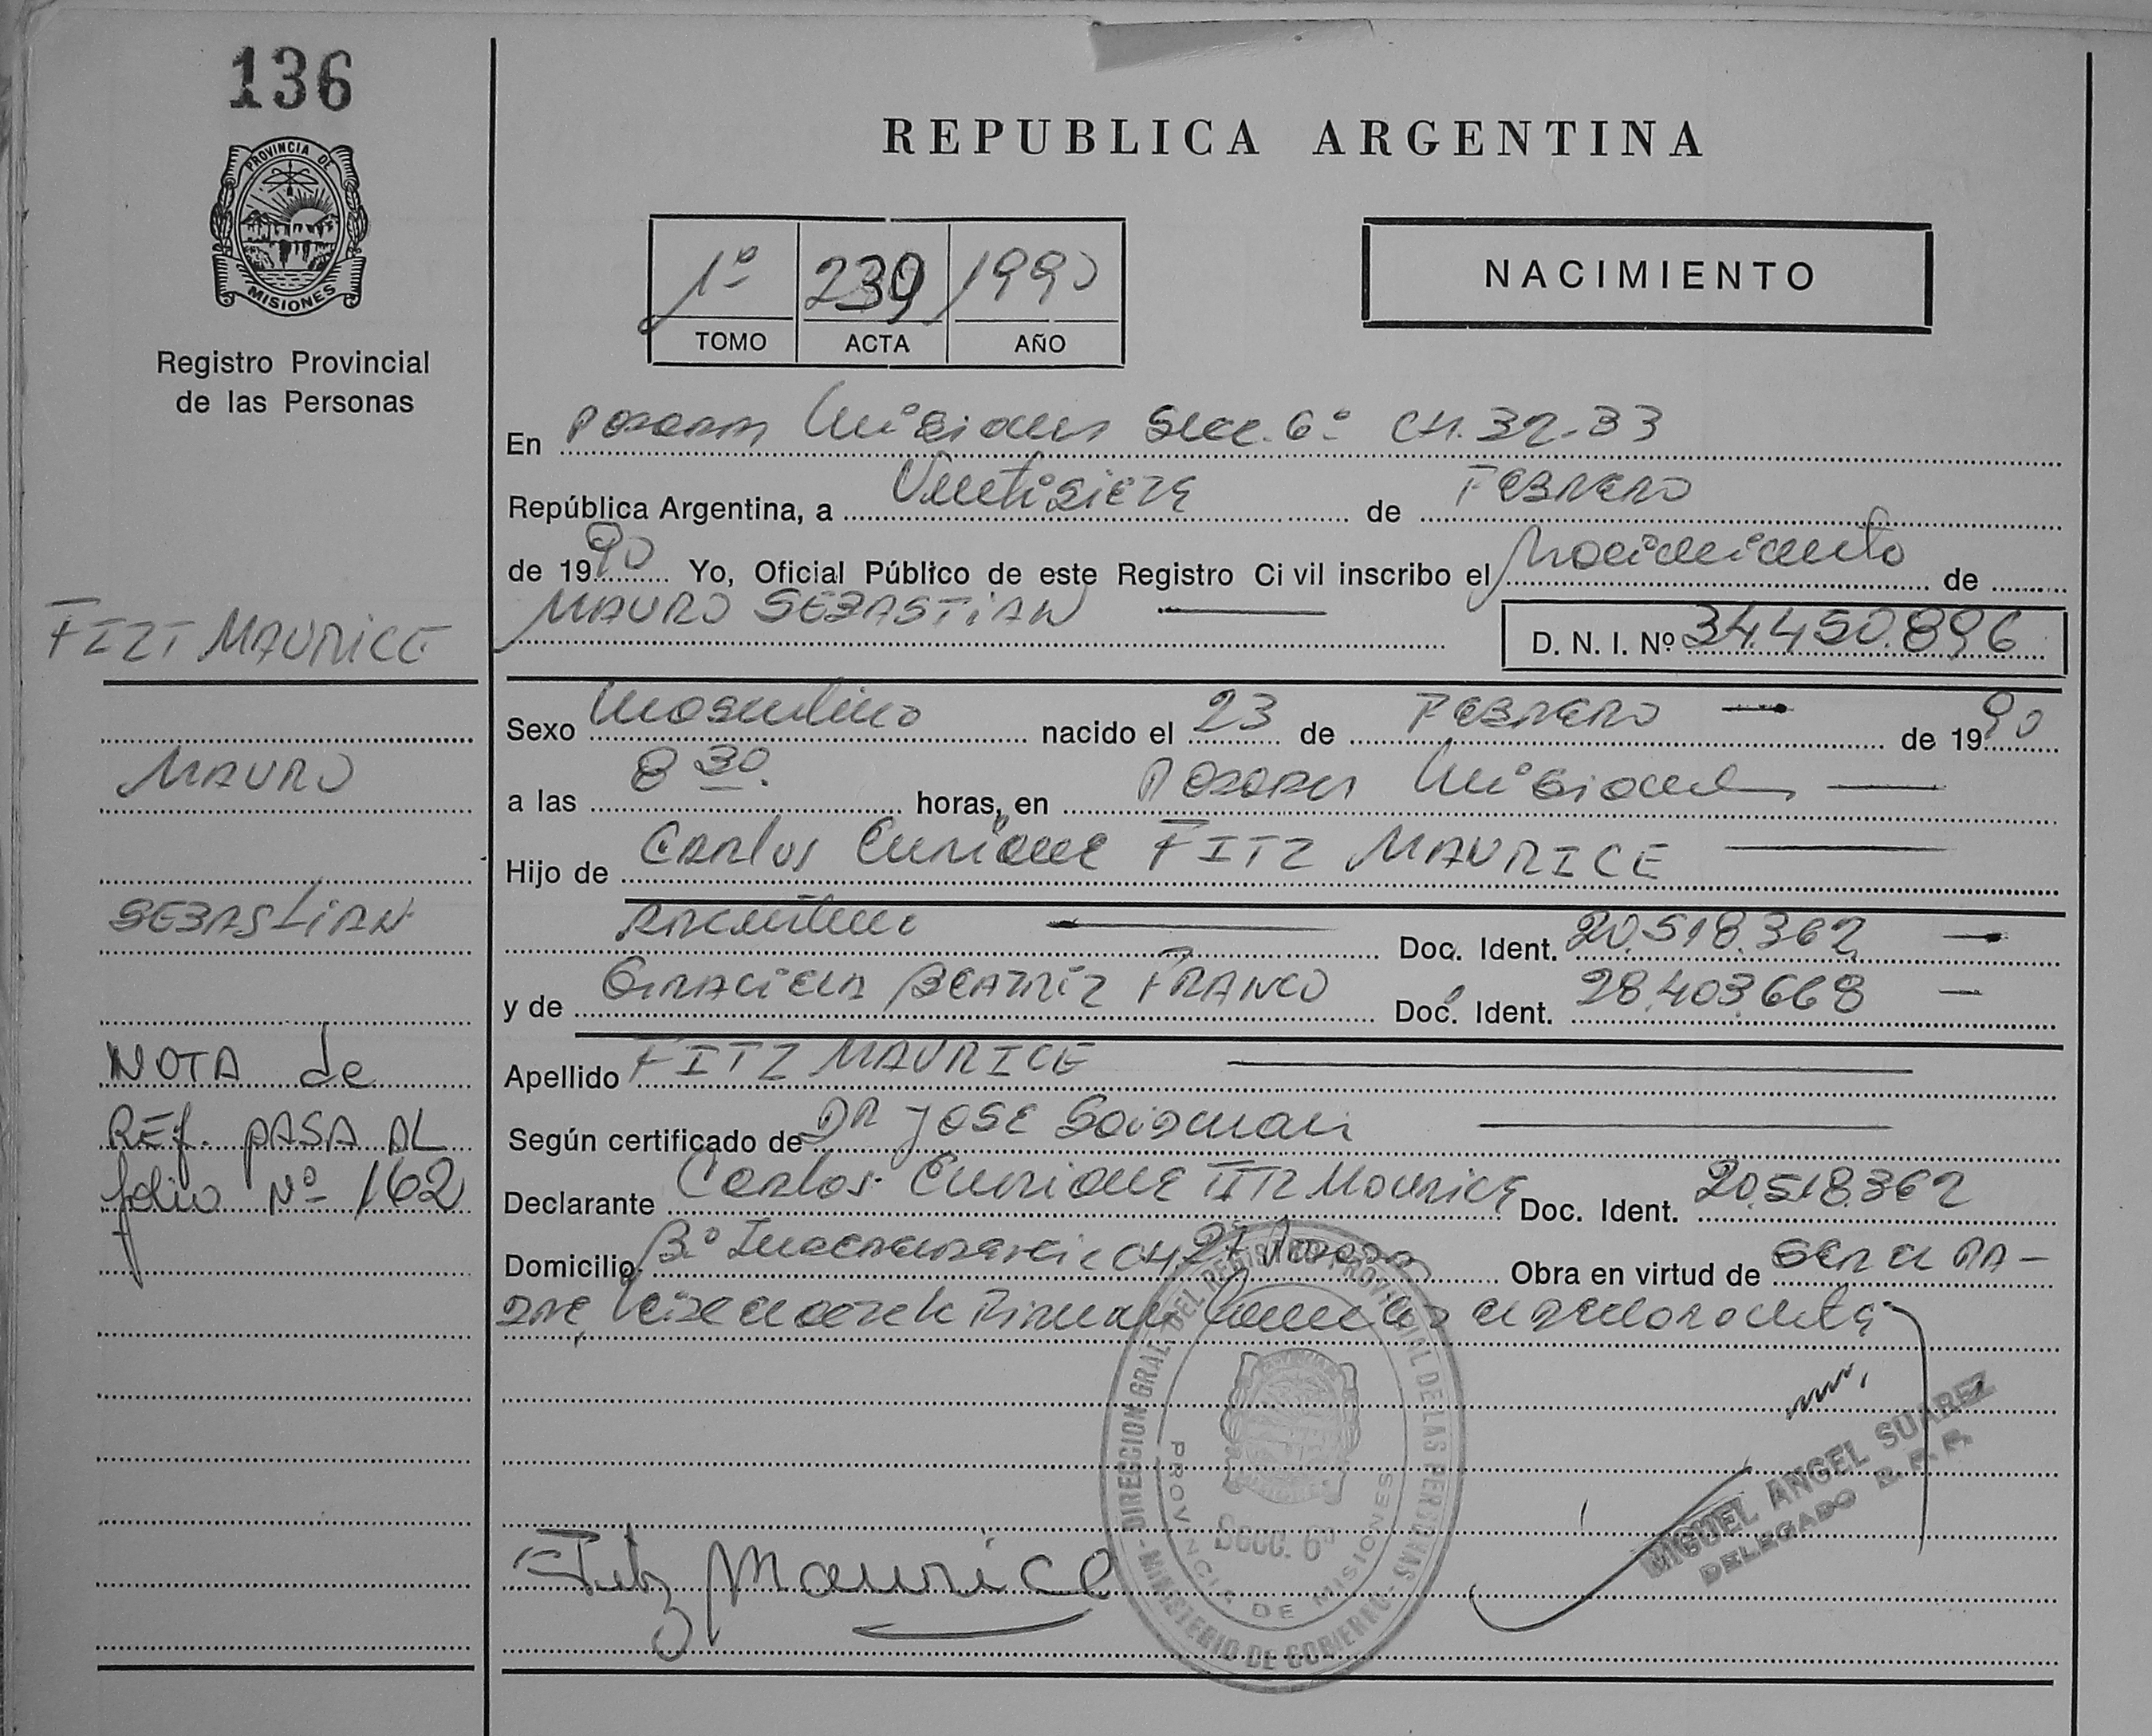 136
PROVINCIA DE
MISIONES
Registro Provincial
de las Personas
REPUBLICA ARGENTINA
1º 239 1990
TOMO ACTA AÑO
NACIMIENTO
En Posadas Misiones Secc. 6º CH. 32-33
República Argentina, a Ventisiete de Febrero
de 1990 Yo, Oficial Público de este Registro Civil inscribo el Nacimiento de
MAURO SEBASTIAN
D. N. I. Nº 34.450.896
FIZT MAURICE
MAURO
SEBASTIAN
NOTA de
REf. PASA AL
folio Nº 162
Sexo Masculino nacido el 23 de Febrero de 1990
a las 8 30. horas, en Posadas Misiones
Hijo de Carlos Enrique FITZ MAURICE
Argentino Doc. Ident. 20.518.362
y de Graciela Beatriz FRANCO Doc. Ident. 28.403668
Apellido FITZ MAURICE
Según certificado de DR JOSE
Declarante Carlos Enrique FITZ Maurice Doc. Ident. 20.518.362
Domicilio Bº CH 27 Obra en virtud de Ser el Pa-
dre
DIRECCION GRAL. DEL REGISTRO PROVINCIAL DE LAS PERSONAS - MINISTERIO DE GOBIERNO -
Secc. 6º
PROVINCIA DE MISIONES
Fitz Maurice
MIGUEL ANGEL SUAREZ
DELEGADO R. P. P.